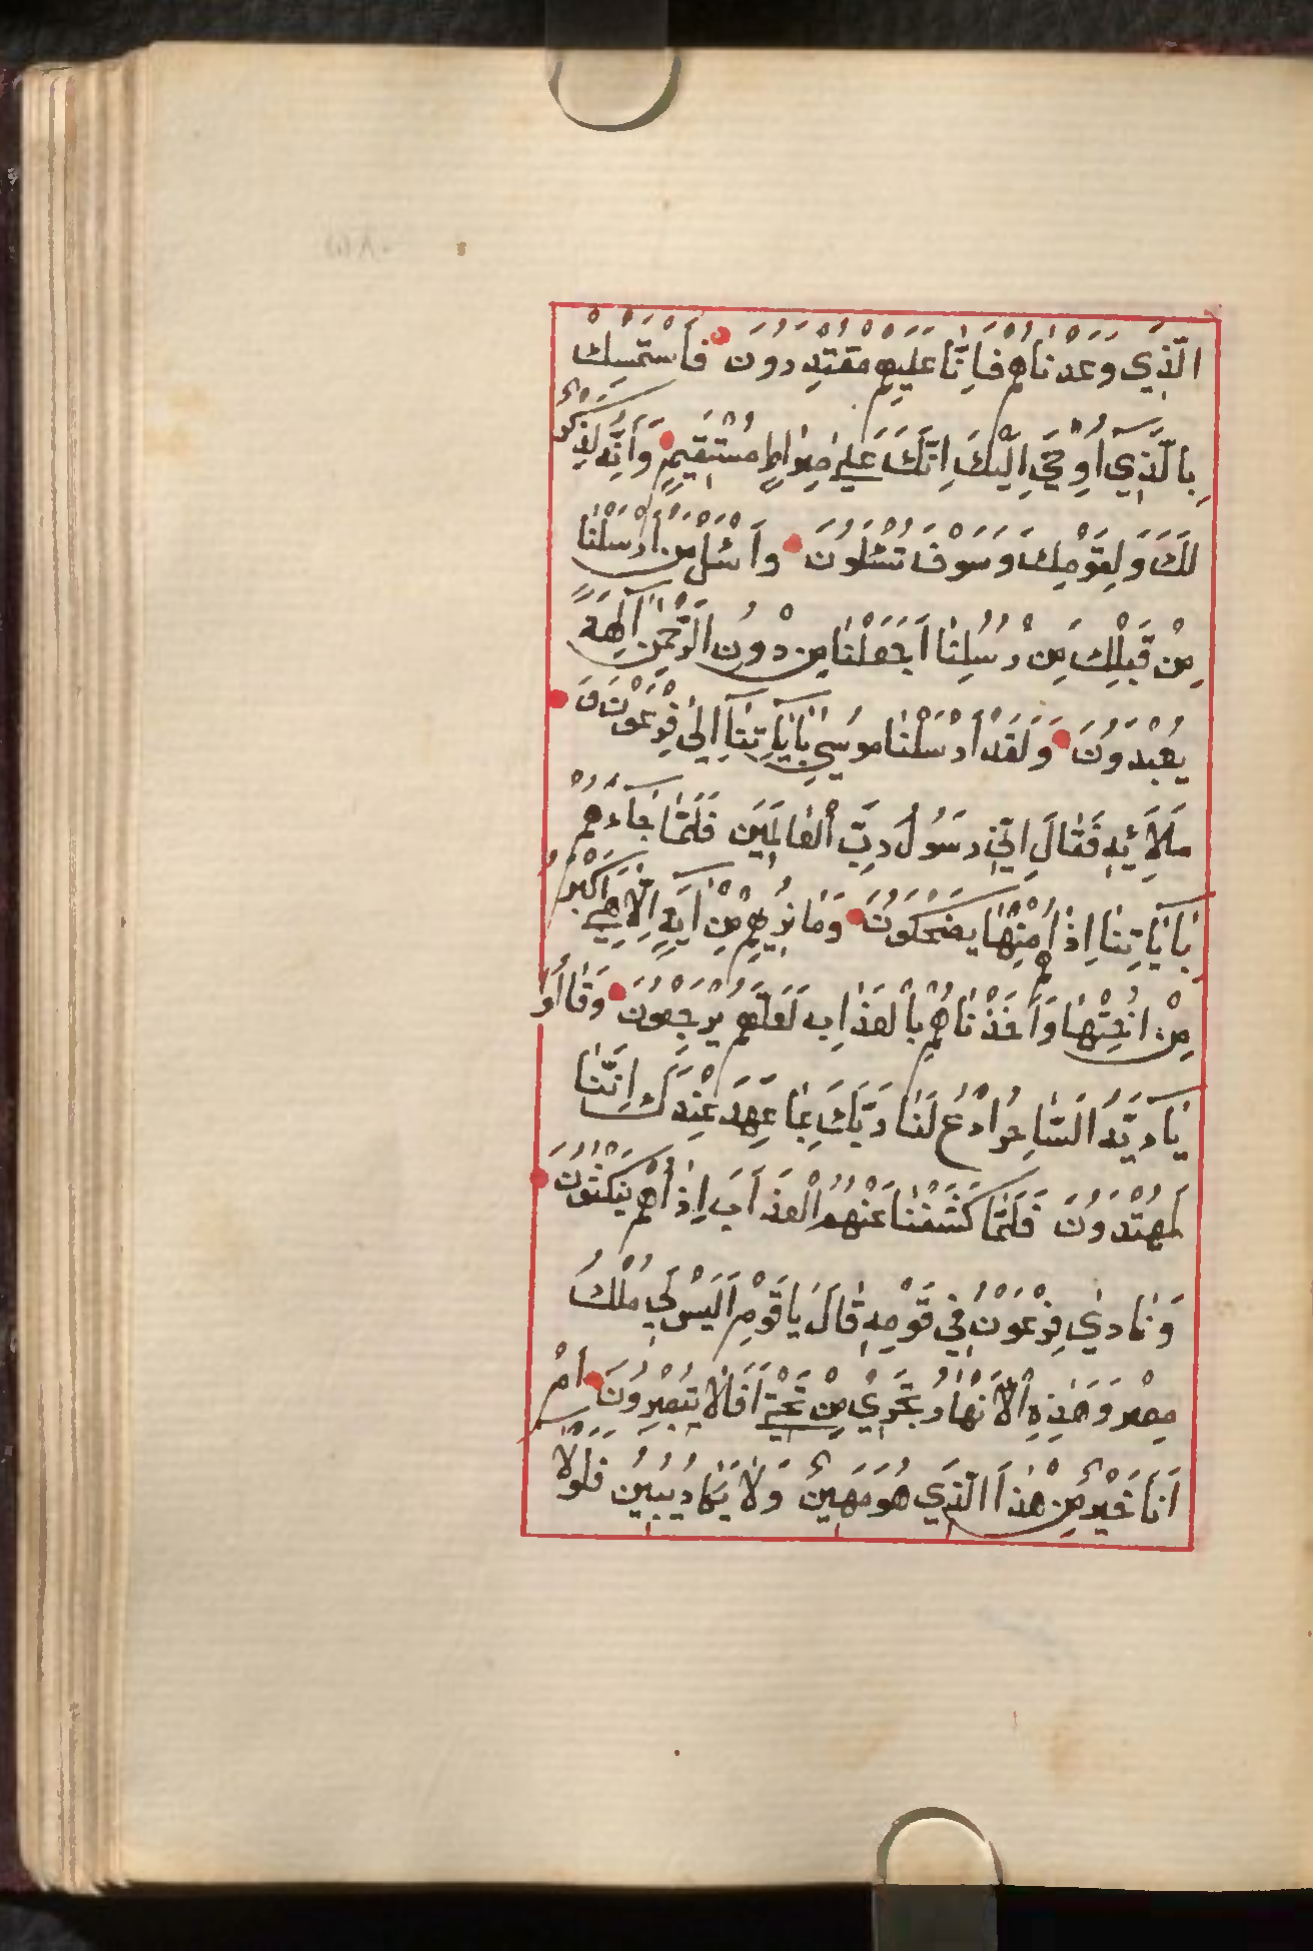 الَّذِي وَعَدْنَاهُمْ فَاِنَّا عَلَيْهِمْ مُقْتَدِرُونَ فَاَسْتَمْسِكْ
بِالَّذِيٓ اُوحِيَ اِلَيْكَ اِنَّكَ عَلٰي صِرَاطٍ مُسْتَقِيمٍ وَاَنَّهُ لَذِكْرٌ
لَكَ وَلِقَوْمِكَ وَسَوْفَ تُسْئَلُونَ وَاَسْئَلْ مَنْ اَرْسَلْنَا
مِنْ قَبْلِكَ مِنْ رُسُلِنَا اَجَعَلْنَا مِنْ دُونِ الرَّحْمٰنِ آلِهَةً
يُعْبَدُونَ وَلَقَدْ اَرْسَلْنَا مُوسٰي بِاٰيَاتِنَآ اِلٰي فِرْعَوْنَ وَ
مَلَائِهِ فَقَالَ اِنِّي رَسُولُ رَبِّ الْعَالَمِينَ فَلَمَّا جَآءَهُمْ
بِاٰيَاتِنَا اِذَا هُمْ مِنْهَا يَضْحَكُونَ وَمَا نُرِيهِمْ مِنْ اٰيَةٍ اِلَّا هِيَ اَكْبَرُ
مِنْ اُخْتِهَا وَاَخَذْنَاهُمْ بِالْعَذَابِ لَعَلَّهُمْ يَرْجِعُونَ وَقَالُوا
يَآ اَيُّهَ السَّاحِرُ ادْعُ لَنَا رَبَّكَ بِمَا عَهِدَ عِنْدَكَ اِنَّنَا
لَمُهْتَدُونَ فَلَمَّا كَشَفْنَا عَنْهُمُ الْعَذَابَ اِذَا هُمْ يَنْكُثُونَ
وَنَادٰي فِرْعَوْنُ فِي قَوْمِهِ قَالَ يَا قَوْمِ اَلَيْسَ لِي مُلْكُ
مِصْرَ وَهَذِهِ الْاَنْهَارُ تَجْرِي مِنْ تَحْتِي اَفَلَا تُبْصِرُونَ اَمْ
اَنَا خَيْرٌ مِنْ هٰذَا الَّذِي هُوَ مَهِينٌ وَلَا يَكَادُ يُبِينُ فَلَوْلَا